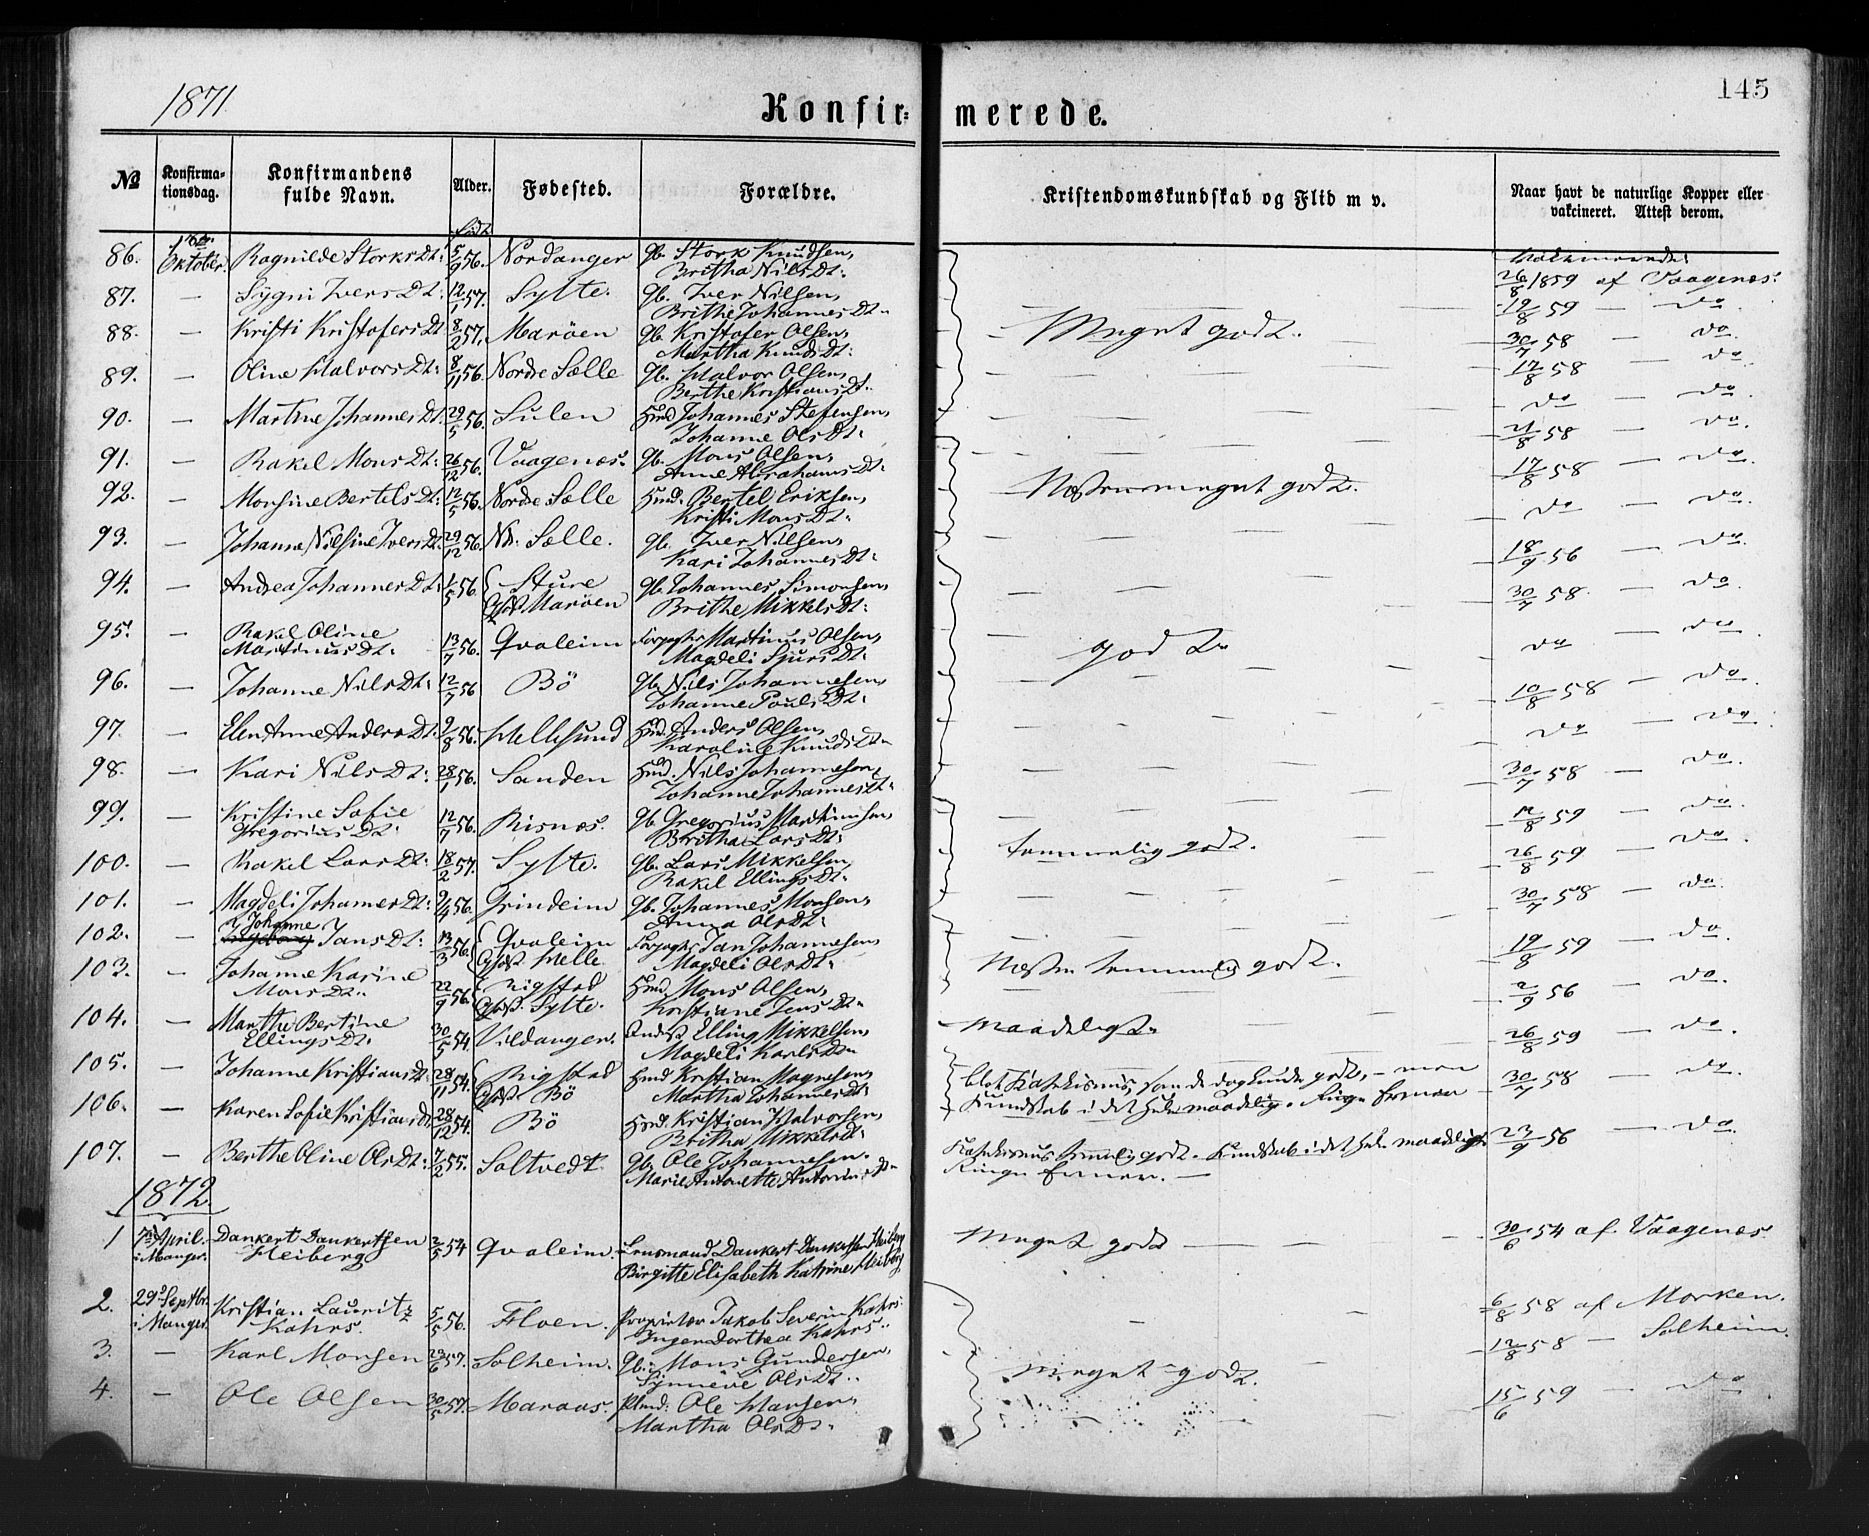 1871.
Konfirmerede.
145
№
Konfirmationsdag.
Konfirmandens fulde Navn.
Alder.
Fødested.
Forældre.
Kristendomskundskab og Flid m v.
Naar havt de naturlige Kopper eller vakcineret. Attest derom.
født
86. 1ste Oktober. Ragnilde StorksDt: 5/9 56. Nordanger Gb. Stork Knudsen, 26/8 1859 af Vaagenæs.
Britha NilsDt:
87. — Sygni IversDt: 12/1 57. Sylte. Gb. Iver Nilsen, 19/8 59 — do
Brithe JohannesDt.
88. — Kristi KristofersDt 8/2 57. Marøen Gb. Kristofer Olsen, Meget godt. 30/7 58 — do.
Martha KnudsDt:
89. — Oline HalvorsDt: 8/11 56. Nordre Sælle Gb. Halvor Olsen, 17/8 58 — do
Berthe KristiansDt.
90. — Martine JohannesDt: 29/5 56. Sulen Hmd Johannes Stefensen, do — do
Johanne OlsDt:
91. — Rakel MonsDt: 26/12 56. Vaagenæs. Gb. Mons Olsen, 21/8 58 — do.
Anne AbrahamsDt:
92. — Monsine BertelsDt: 12/5 56. Nordre Sælle Hmd. Bertel Eriksen, Næsten meget godt. 17/8 58 — do.
Kristi MonsDt.
93. — Johanne Nilsine IversDt: 29/12 56. Nd. Sælle. Gb. Iver Nilsen, do — do.
Kari JohannesDt:
94. — Andrea JohannesDt: 1/5 56. Sture Gb. Johannes Simonsen, 18/9 56 — do.
Marøen Brithe MikkelsDt:
95. — Rakel Oline 13/7 56. Qvaleim Martinus Olsen, godt. 30/7 58. — do.
MartinusDt. Magdeli SjursDt:
96. — Johanne NilsDt: 12/7 56 Bö Gb. Nils Johannesen, do — do.
Johanne PoulsDt:
97. — Elen Anne AndersDt. 9/8 56. Hellesund Hmd. Anders Olsen, 10/8 58 — do.
Karoline KnudsDt.
98. — Kari NilsDt: 28/1 56. Sanden Hmd. Nils Johannesen, do — do.
Johanne JohannesDt:
99. — Kristine Sofie 12/7 56. Risnæs. Gb. Gregorius Martinusen, 30/7 58 — do.
GregoriusDt. Britha LarsDt:
100. — Rakel LarsDt: 18/2 57. Sylte. Gb. Lars Mikkelsen, temmelig godt. 12/8 59 — do.
Rakel EllingsDt.
101. — Magdeli JohannesDt: 9/4 56. Grindeim Gb. Johannes Monsen, 26/8 59 — do.
Anna OlsDt:
102. — Johanne JansDt: 13/3 56. Qvaleim Jan Johannesen, 30/7 58 — do.
Helle Magdeli OlsDt:
103. — Johanne Karine 22/9 56. Rigstad Hmd. Mons Olsen, Næsten temmelig godt. 19/8 59 — do.
MonsDt. Sylte. Kristiane JensDt.
104. — Marthe Bertine 30/5 54. Vildanger. Elling Mikkelsen, maadeligt. 2/9 56 — do.
EllingsDt. Magdeli KarlsDt.
105. — Johanne KristiansDt: 28/11 54. Rigstad Hmd Kristian Magnesen, 26/8 59 — do
Bö Martha JohannesDt:
106. — Karen Sofie KristiansDt. 28/12 54. Bö Hmd. Kristian Halvorsen, 30/7 58 — do.
Britha MikkelsDt.
Kundskab i det Hele maadelig. Ringe Evner
107. — Berthe Oline OlsDt: 7/2 55. Soltvedt. Gb. Ole Johannesen. 23/9 56 — do.
Marie Antonette
Katekismus temmelig godt. Kundskab i det Hele maadelig.
Ringe Evner. —
1872.
1 7de April. Dankert Dankertsen 2/5 54 Qvaleim. Lensmand Dankert Dankertsen Heiberg Meget godt 30/6 54 af Vaagenæs
i Manger. Heiberg Birgitte Elisabeth Katrine Heiberg
2. 29de Septbr. Kristian Lauritz 5/5 56. Floen. Proprietær Jakob Severin Kahrs 6/8 58 af Morken.
i Manger. Kahrs. Inger Dorthea Kahrs.
3. — Karl Monsen 29/6 57. Solheim. Gb. Mons Gundersen, Meget godt. 12/8 58 — Solheim.
Synneve OlsDt.
4. — Ole Olsen 30/5 57. Maraas. Plmd: Ole Hansen, 15/6 59 — do
Martha OlsDt.